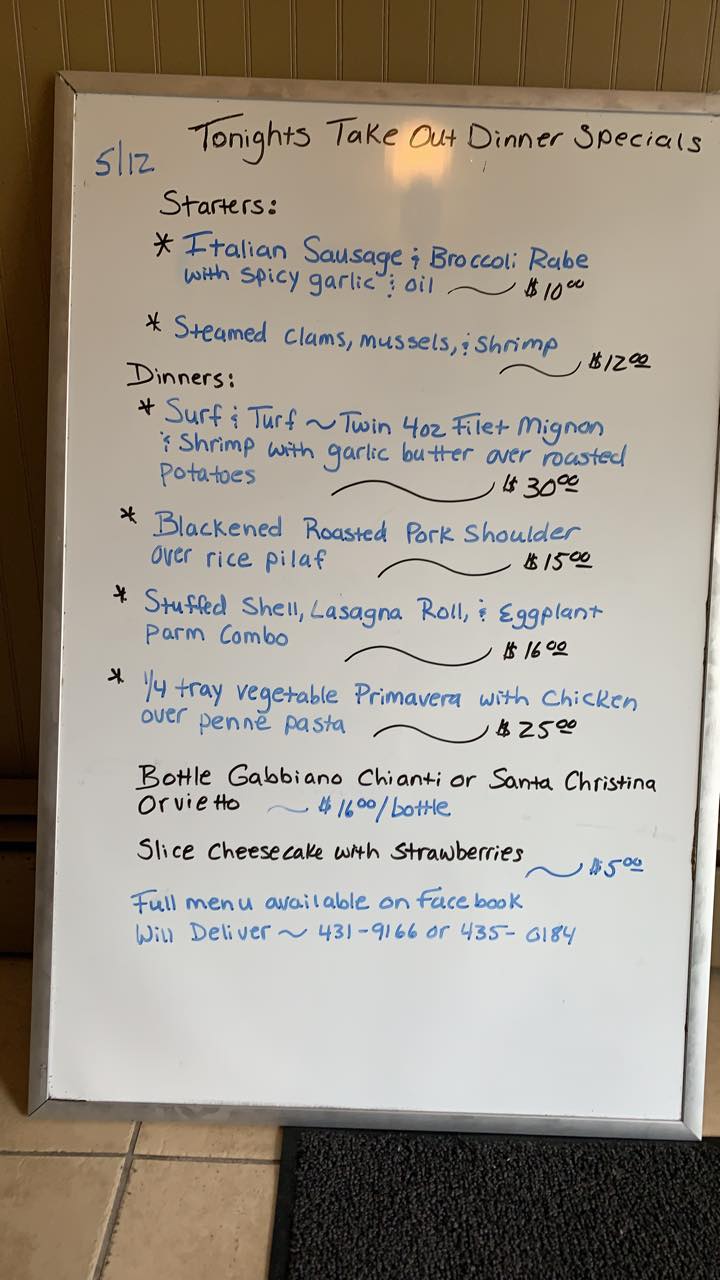 Tonights Take Out Dinner Specials
5/12
Starters:
* Italian Sausage & Broccoli Rabe
with spicy garlic & oil ~ $10.00
* Steamed clams, mussels, & shrimp
~ $12.00
Dinners:
* Surf & Turf ~ Twin 4oz Filet Mignon
& Shrimp with garlic butter over roasted
potatoes ~ $30.00
* Blackened Roasted Pork Shoulder
over rice pilaf ~ $15.00
* Stuffed Shell, Lasagna Roll, & Eggplant
Parm Combo ~ $16.00
* 1/4 tray vegetable Primavera with Chicken
over penne pasta ~ $25.00
Bottle Gabbiano Chianti or Santa Christina
Orvietto ~ $16.00/bottle
Slice Cheesecake with Strawberries
~ $5.00
Full menu available on Facebook
Will Deliver ~ 431-9166 or 435-0184